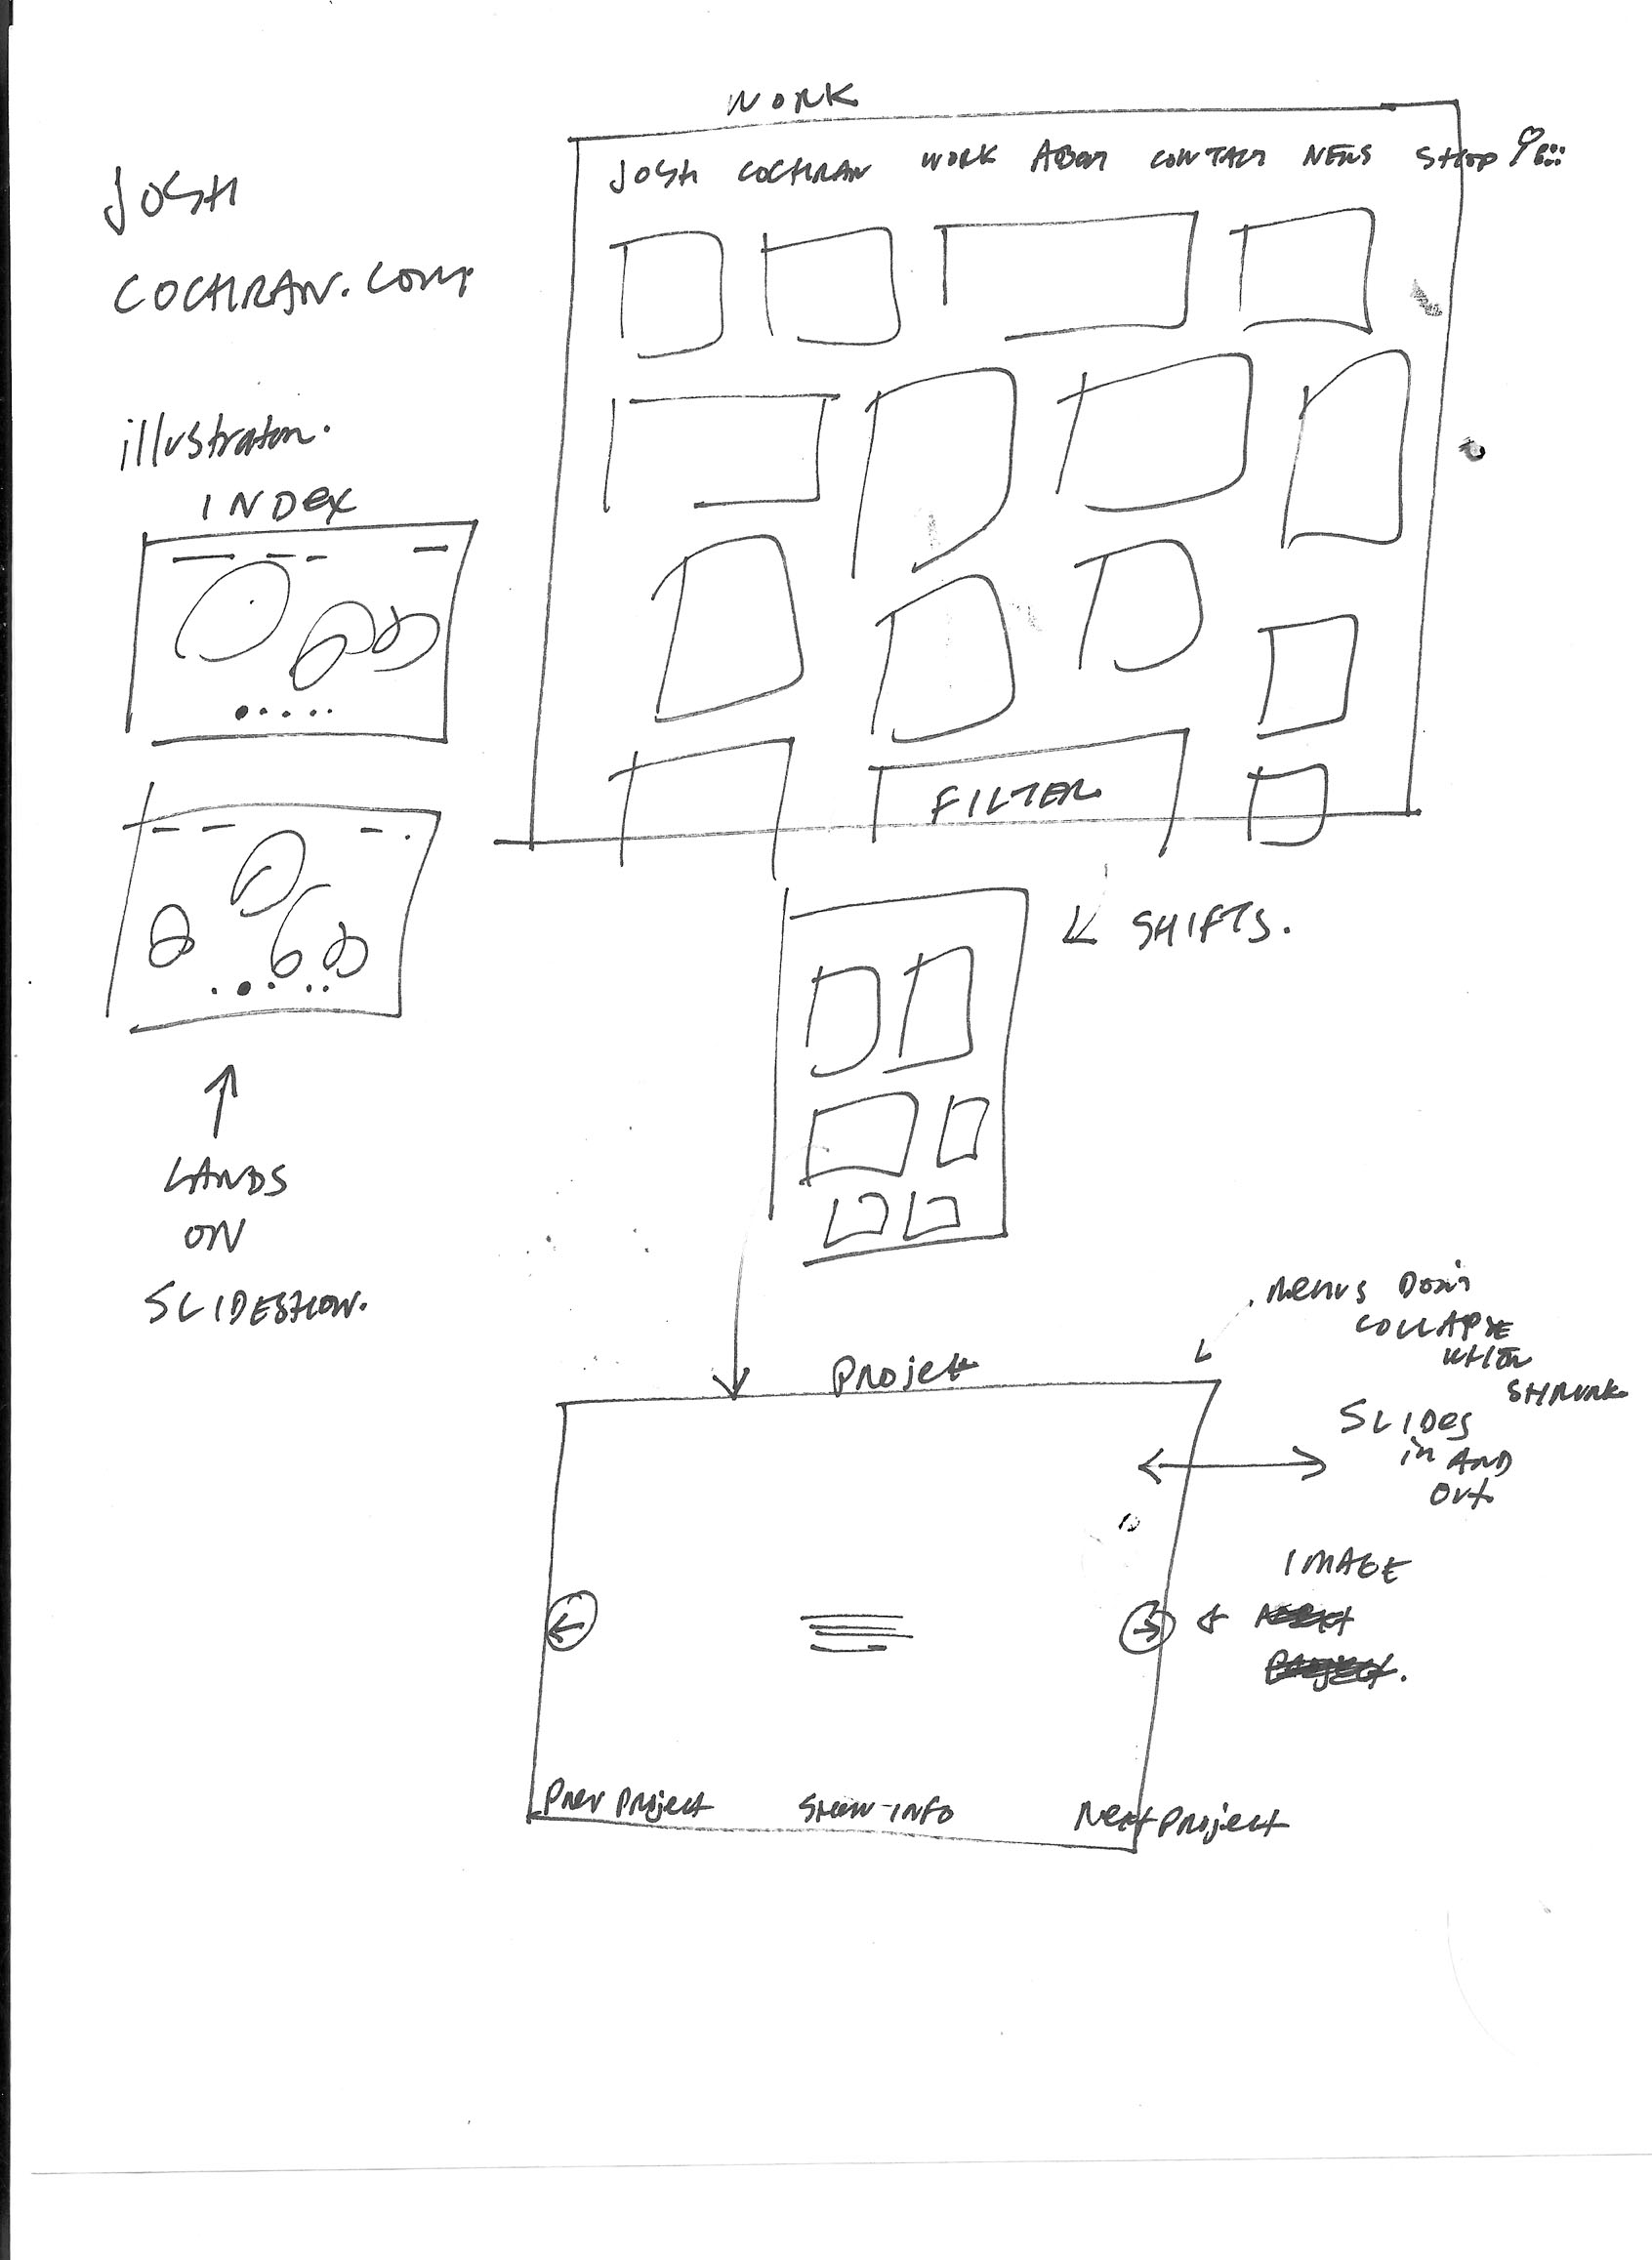 JOSH
COCHRAN.COM
illustraton.
INDEX
LANDS
ON
SLIDESHOW.
WORK
JOSH COCHRAN WORK ABOUT CONTACT NEWS SHOP
FILTER
SHIFTS.
Menus Don't
COLLAPSE
WHEN
SHRUNK
Project
SLIDES
in AND
OUT.
IMAGE
Prev Project SHOW-INFO Next Project